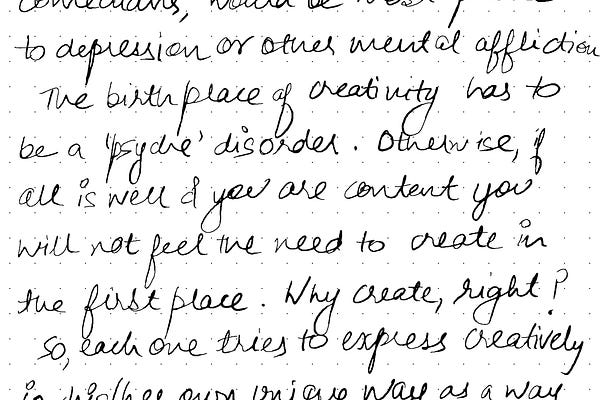 comedians, would be most
to depression or other mental affliction
The birthplace of creativity has to
be a 'psyche' disorder. Otherwise, if
all is well & you are content you
will not feel the need to create in
the first place. Why create, right?
So, each one tries to express creatively
in his/her own unique way as a way